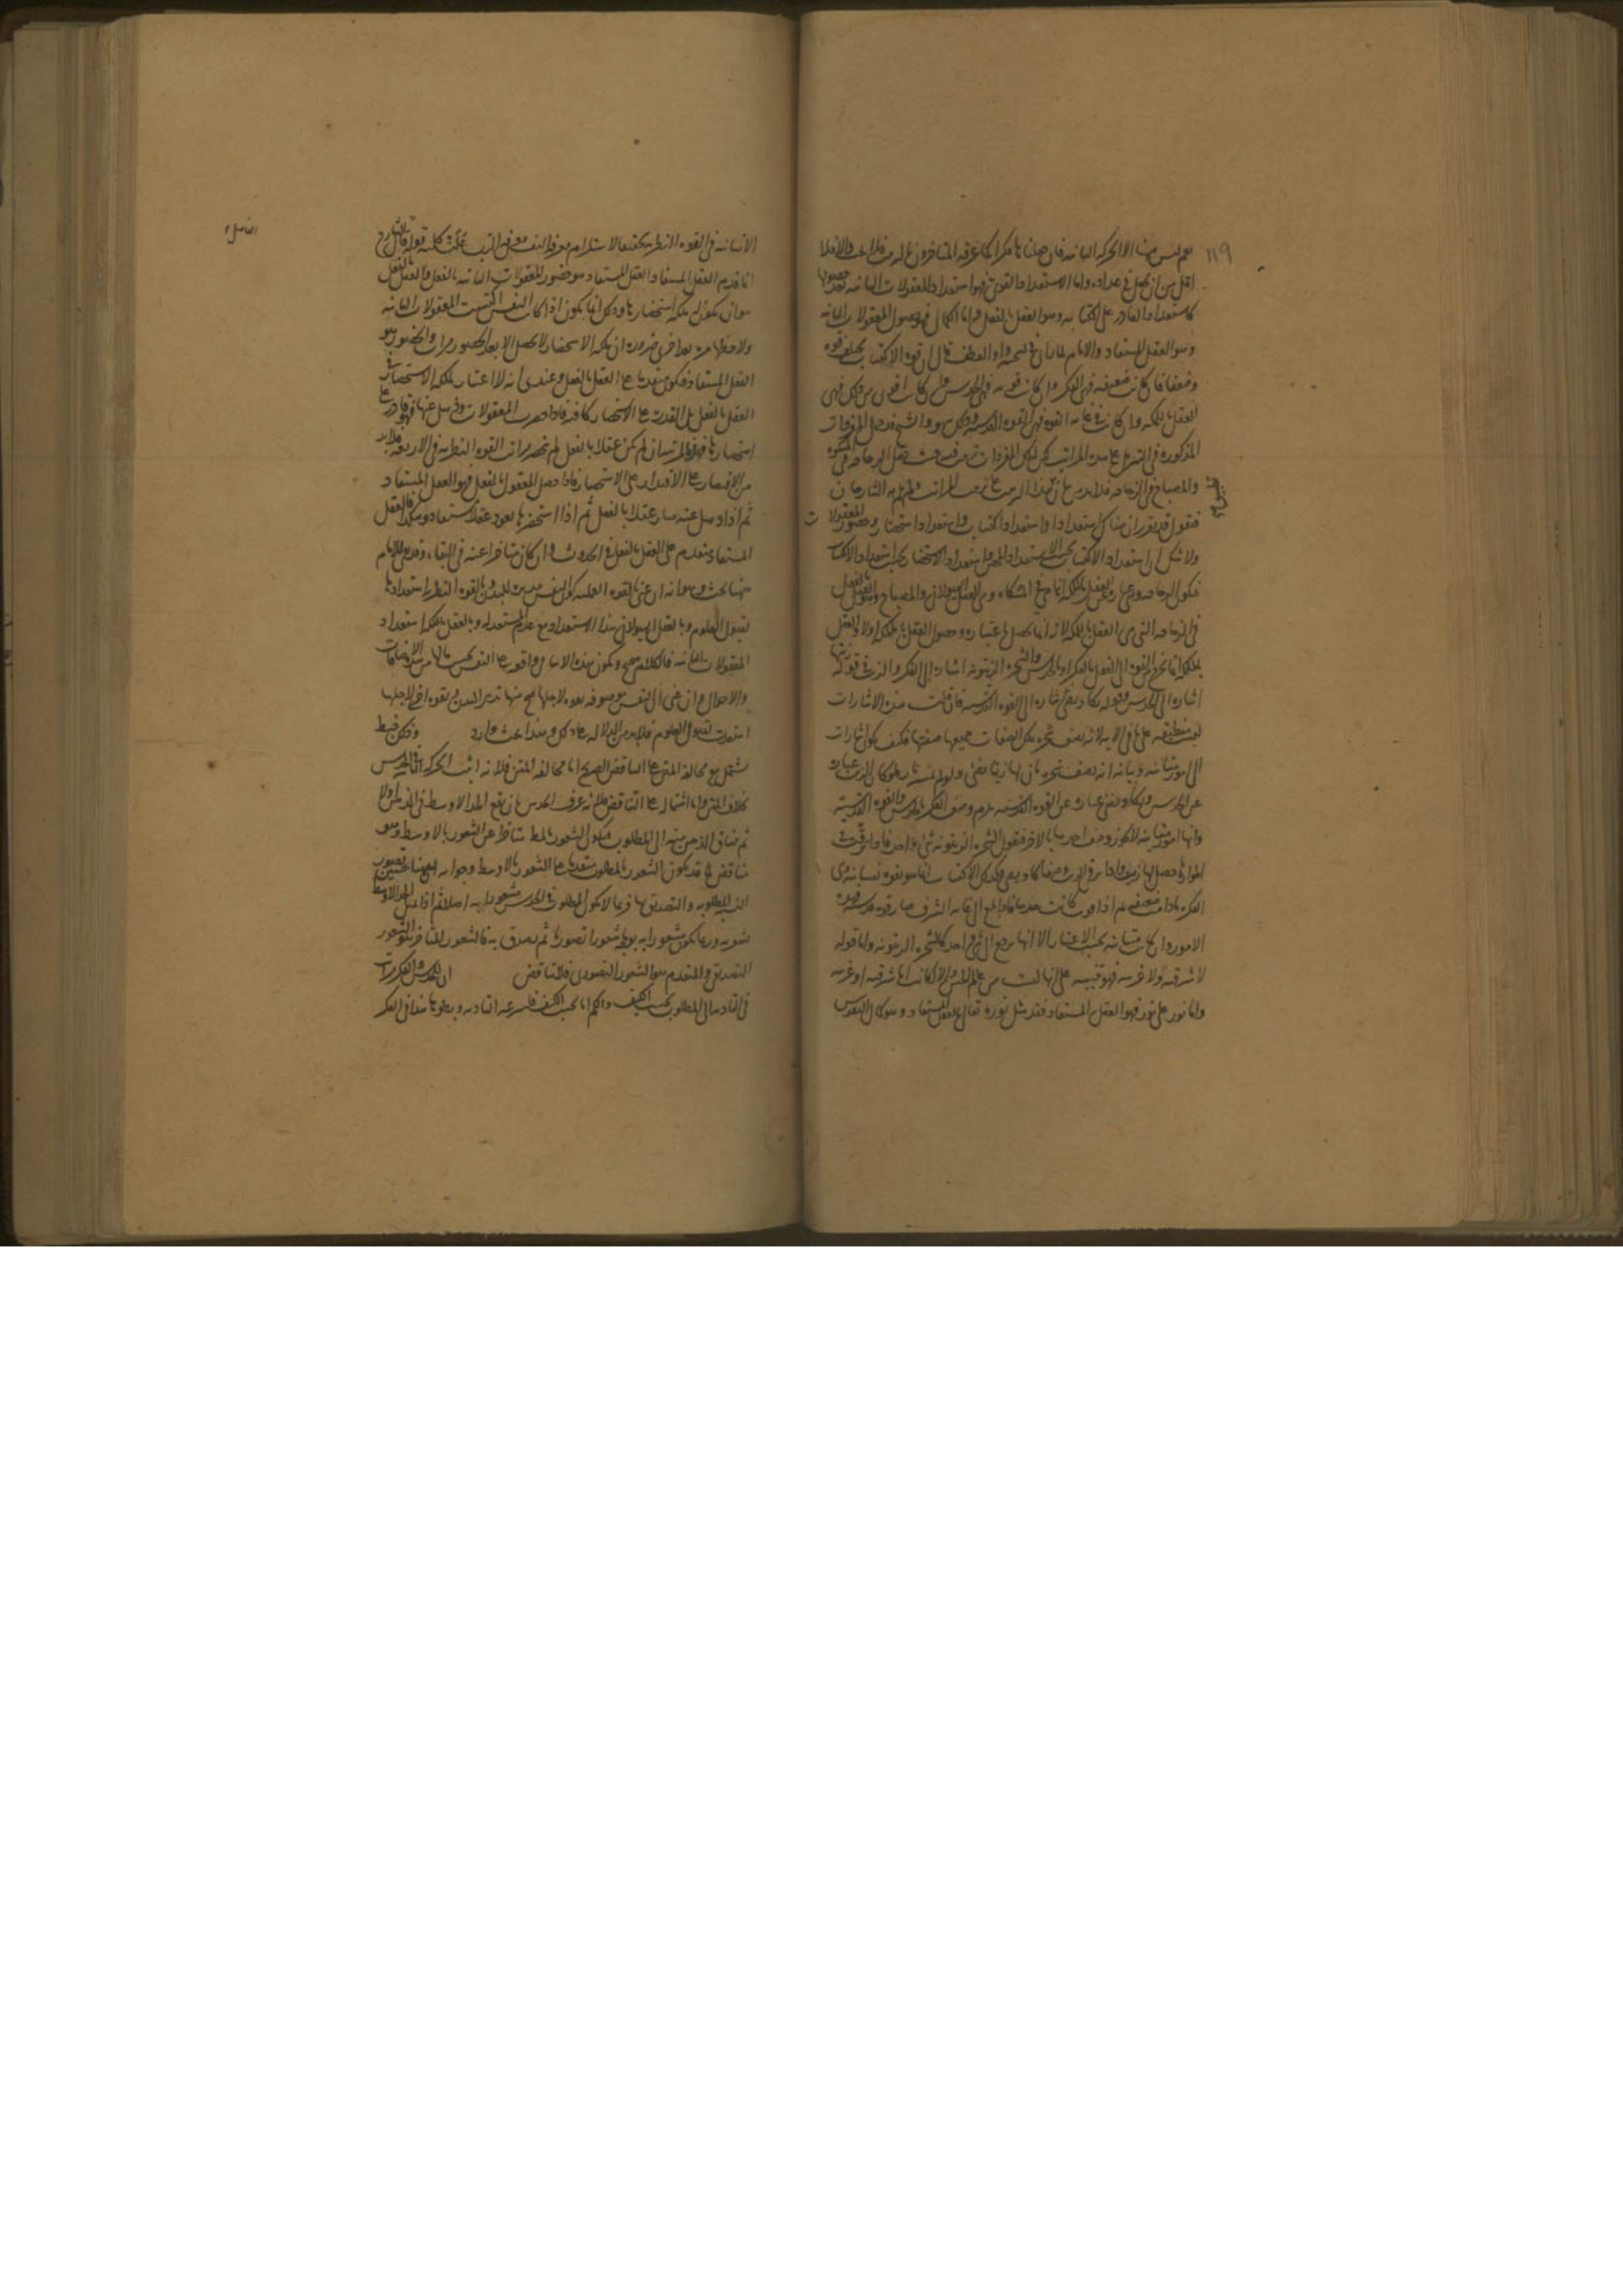 ١١٩
نعم ليس هنا الا الحركة الثانية فان هانا فكرا كما عرفه المتاخرون
اقل من ان يحصل في عداده واما الاستعداد القوى فهو استعداد المعقولات الثانية بعد حصولها
كاستعداد القادر على الكتابة وهو العقل بالفعل واما الكمال فهو حصول المعقولات الثانية
وهو العقل المستفاد والامام لما راى في نسخه واو العطف قال ان قوة الاكتساب يختلف قوة
وضعفا فان كانت ضعيفة فهى الفكر وان كانت قوية فهى الحدس وان كانت اقوى من ذلك فهى
العقل بالملكة وان كانت في غاية القوة فهى القوة القدسية وذلك سهو والشيخ قد حمل المفردات
المذكورة في التنزيل على هذه المراتب لكن تلك المفردات مرتبة حيث جعل الزجاجة في المشكوة
والمصباح في الزجاجة فلا بد من بيان هذا الترتيب على ترتيب المراتب ولم يهتم به الشارحان
فنقول قد تقرر ان هناك استعدادا واستعداد اكتساب واستعداد استحضار وحضور المعقولات
ولا شك ان استعداد الاكتساب بحسب الاستعداد المحض واستعداد الاستحضار بحسب استعداد الاكتساب
فيكون الزجاجة وهى عبارة عن العقل بالملكة انما هى في المشكاة وهى العقل الهيولانى والمصباح وهو العقل بالفعل
في الزجاجة التى هى العقل بالملكة لانه انما يحصل باعتباره وحصول العقل بالملكة اولا والعقل
بالملكة انما يخرج من القوة الى الفعل بالفكر او بالحدس والشجرة الزيتونة اشارة الى الفكر والزيت في قوله زيتها
اشارة الى الحدس وقوله يكاد يضىء اشارة الى القوة القدسية فان قلت هذه الاشارات
ليست منطبقة على ما في الاية لانه وصف شجرة بكل الصفات جميعها صفتها فكيف يكون اشارات
الى امور متباينة وبيانه انه وصف شجرة بان لها زيتا يضىء ولو لم تمسسه نار فلو كان الزيت عبارة
عن الحدس ويكاد يضىء عبارة عن القوة القدسية يلزم وصف الفكر بالحدس والقوة القدسية
وانها امور متباينة لا يجوز وصف احدها بالاخر فنقول الشجرة الزيتونة شىء واحد فاذا ترقت في
اطوارها حصل لها زيت واذا ترقى الزيت وصفا يكاد يضىء وكذلك الاكتساب انما هو بقوة نفسانية هى
الفكر ما دامت ضعيفة ثم اذا قويت كانت حدسا فاذا بلغ الى غاية الشرف صار قوة قدسية فهذه
الامور وان كانت متباينة بحسب الاعتبار الا انها يرجع الى شىء واحد كالشجرة الزيتونة واما قوله
لا شرقية ولا غربية فهو تنبيه على انها ليست من عالم الحس والا لكانت اما شرقية او غربية
واما نور على نور فهو العقل المستفاد فقد مثل نوره تعالى بالعقل المستفاد وهو كمال النفس
الانسانية في القوة النظرية يحتمل الاستلزام معرفة النفس معرفة الرتب قال الشارح
انما قدم العقل المستفاد العقل المستفاد هو حضور المعقولات الثانية بالفعل والعقل بالفعل
هو ان يكون له ملكة استحضارها وذلك انما يكون اذا كانت النفس اكتسبت المعقولات الثانية
ولاحظتها مرة بعد اخرى ضرورة ان ملكة الاستحضار لا يحصل الا بعد الحضور مرات والحضور هو
العقل المستفاد فيكون متقدما على العقل بالفعل وعندى انه لا اعتبار بملكة الاستحضار في
العقل بالفعل بل القدرة على الاستحضار كافية فاذا حضرت المعقولات وذهل عنها فهو قادر على
استحضارها فهذه المرتبة ان لم تكن عقلا بالفعل لم تنحصر مراتب القوة النظرية في الاربعة فلا بد
من الاقتصار على الاقتدار على الاستحضار فاذا حصل المعقول بالفعل فهو العقل المستفاد
ثم اذا ذهل عنه صار عقلا بالفعل ثم اذا استحضرها يعود عقلا مستفادا وهكذا فالعقل
المستفاد متقدم على العقل بالفعل في الحدوث وان كان متاخرا عنه في البقاء وقد بقى للامام
ههنا بحث وهو انه ان عنى بالقوة العملية كون النفس مدبرة للبدن وبالقوة النظرية استعدادها
لقبول العلوم وبالعقل الهيولانى هذا الاستعداد مع عدم المستعد له وبالعقل بالملكة استعداد
المعقولات الثانية فالكلام صحيح ويكون هذه الاسامى واقعة على النفس بحسب مالها من الاضافات
والاحوال وان عنى ان النفس موصوفة بقوة لاجلها صح منها تدبير البدن وبقوة اخرى لاجلها
استعدت لقبول العلوم فلا بد من الدلالة على ذلك وهذا بحث وارد وذلك خبط
يشتمل مع مخالفة المتن على التناقض الصريح اما مخالفة المتن فلانه اثبت الحركة في الحدس
بخلاف المتن واما اشتماله على التناقض فلانه عرف الحدس بان يقع الحد الاوسط في الذهن اولا
ثم ينساق الذهن منه الى المطلوب فيكون الشعور بالمط متاخرا عن الشعور بالاوسط وهو
يناقض قد يكون الشعور بالمطلوب متقدما على الشعور بالاوسط وجوابه ان ههنا تصور
النسبة المطلوبة والتصديق بها فربما لا يكون المطلوب في الحدس مشعورا به اصلا ثم اذا تمثل الحد الاوسط
شعر به وربما يكون مشعورا به بوجه شعورا تصوريا ثم يصدق به فالشعور المتاخر هو الشعور
التصديقى والمتقدم هو الشعور التصورى فلا تناقض الى الحدس والفكر مراتب
في التادية الى المطلوب بحسب الكيف والكم اما بحسب الكيف فلسرعة التادية وبطوئها هذا في الفكر